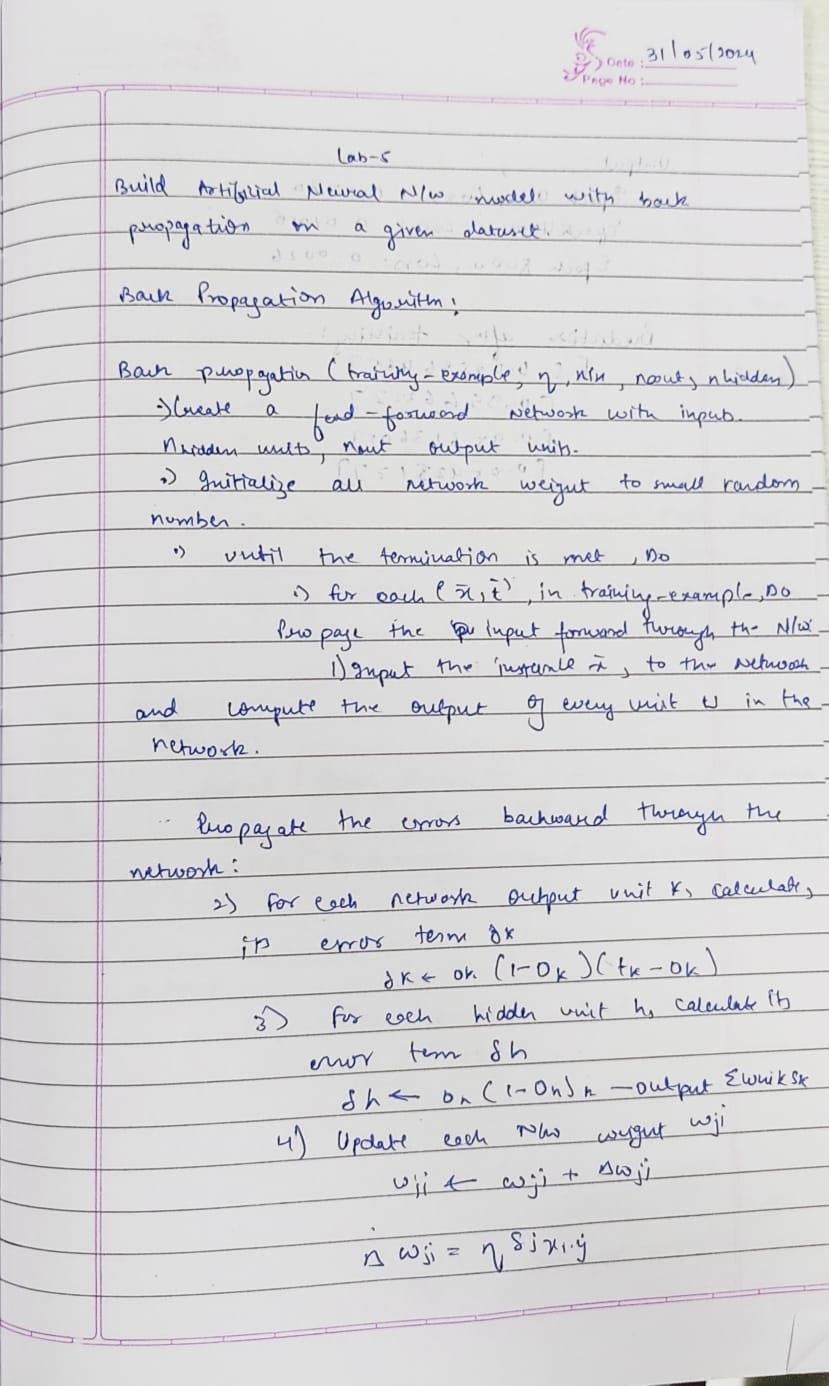 Date : 31/05/2024
Page No :
Lab-5
Build Artificial Neural N/w model with back
propagation on a given dataset.
Back Propagation Algorithm:
Back propogation (training-example, η, nin, nout, nhidden)
Create a feed-forward network with input
nhidden units, nout output units.
Initialize all network weight to small random
number.
until the termination is met, Do
for each (x̄, t̄), in training-example, Do
Propage the input forward through the N/w
1) Input the instance x̄, to the network
and compute the output of every unit u in the
network.
Propagate the errors backward through the
network:
2) for each network output unit k, calculate,
its error term δk
δk ← ok (1-Ok)(tk-Ok)
3) for each hidden unit h, calculate its
error term δh
δh ← on (1-On) n -output Σwnik δk
4) Update each N/w weight wji
wji ← wji + Δwji
Δ wji = η δj xi.j